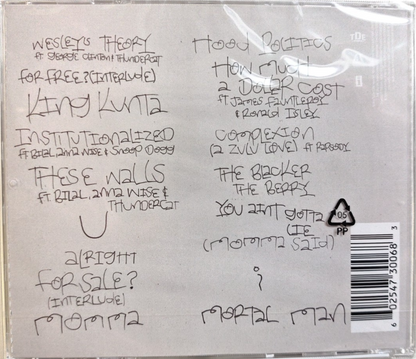 WESLEY'S THEORY
ft GEORGE CLINTON & THUNDERCAT
FOR FREE? (INTERLUDE)
KING KUNTA
INSTITUTIONALIZED
ft BILAL, ANNA WISE & SNOOP DOGG
THESE WALLS
ft BILAL, ANNA WISE &
THUNDERCAT
U
alRIGHT
FOR SALE?
(INTERLUDE)
MOMMA
HOOD POLITICS
HOW MUCH
a DOLLAR COST
ft JAMES FAUNTLEROY
& RONALD ISLEY
COMPLEXION
(a ZULU LOVE) ft RAPSODY
THE BLACKER
THE BERRY
YOU AINT GOTTA
LIE
(MOMMA SAID)
i
MORTAL MAN
05
PP
6 02547 30068 3